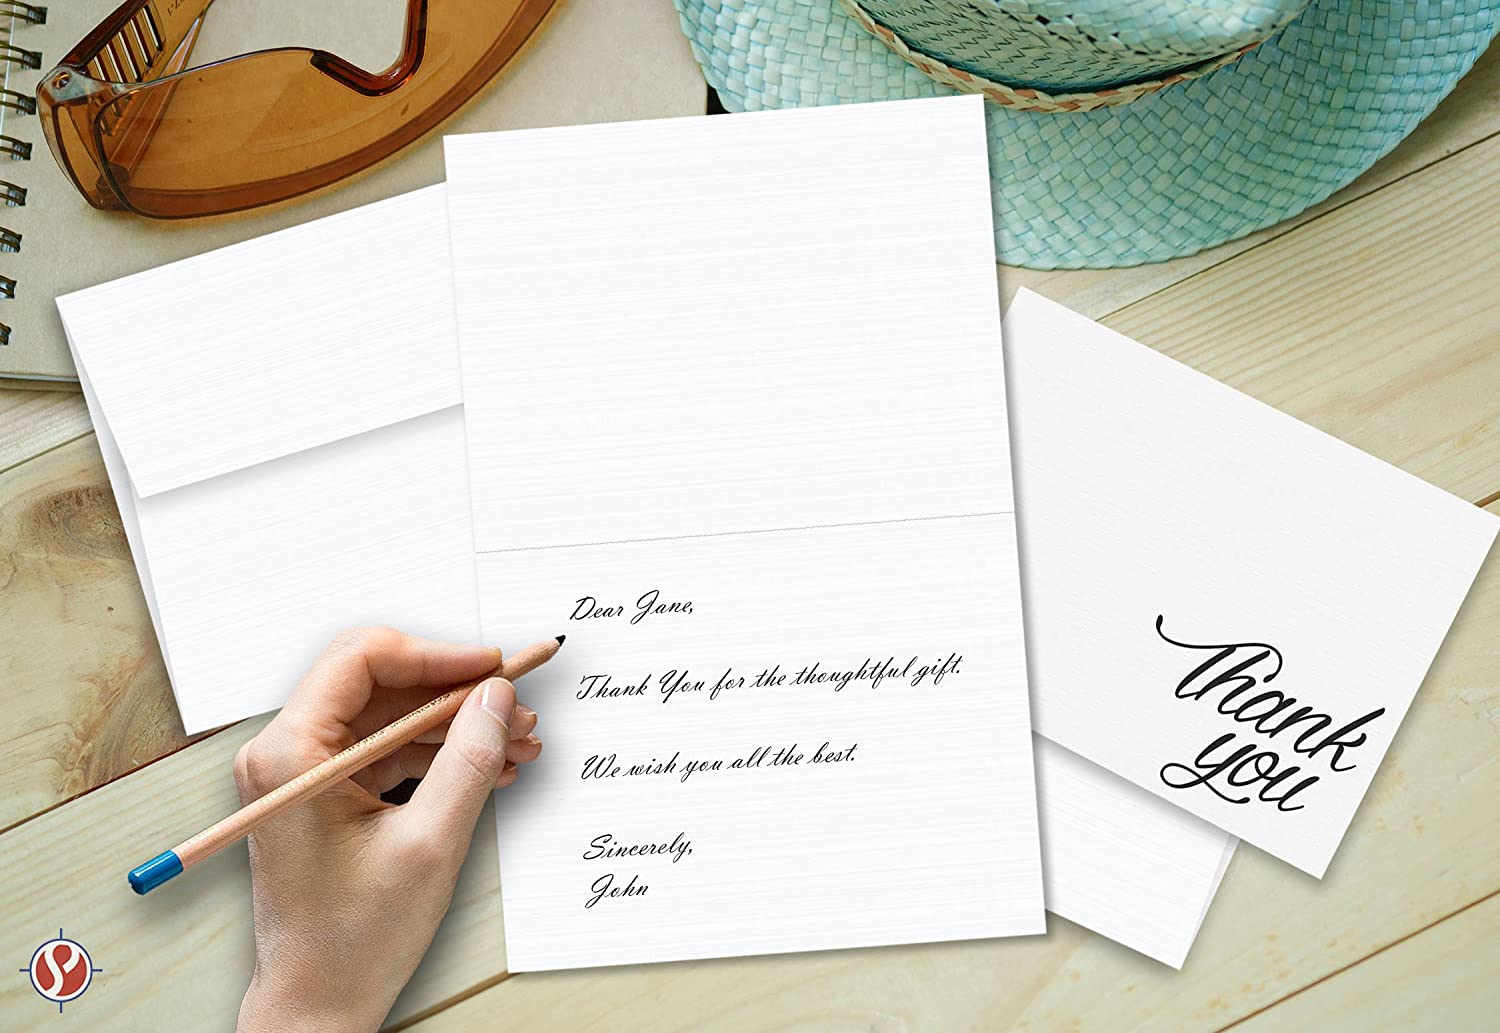 Dear Jane,
Thank You for the thoughtful gift.
We wish you all the best.
Sincerely,
John
Thank
you